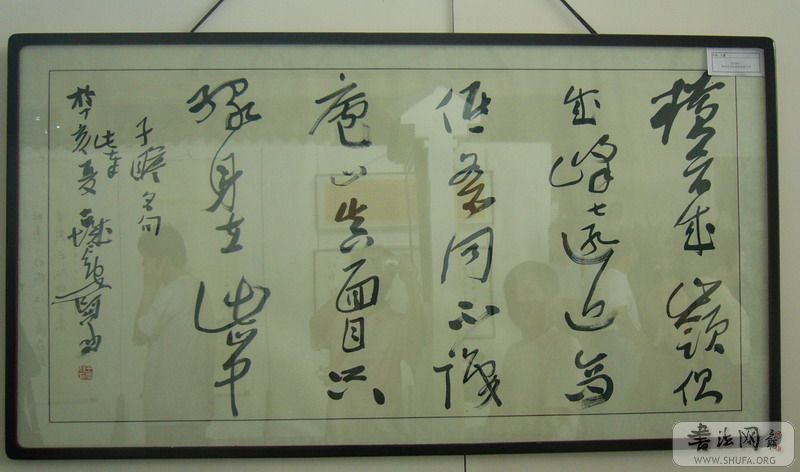 橫看成嶺側
成峰遠近高
低各不同不識
廬山真面目只
緣身在此山中
子瞻名句
丁亥夏
書法网
WWW.SHUFA.ORG